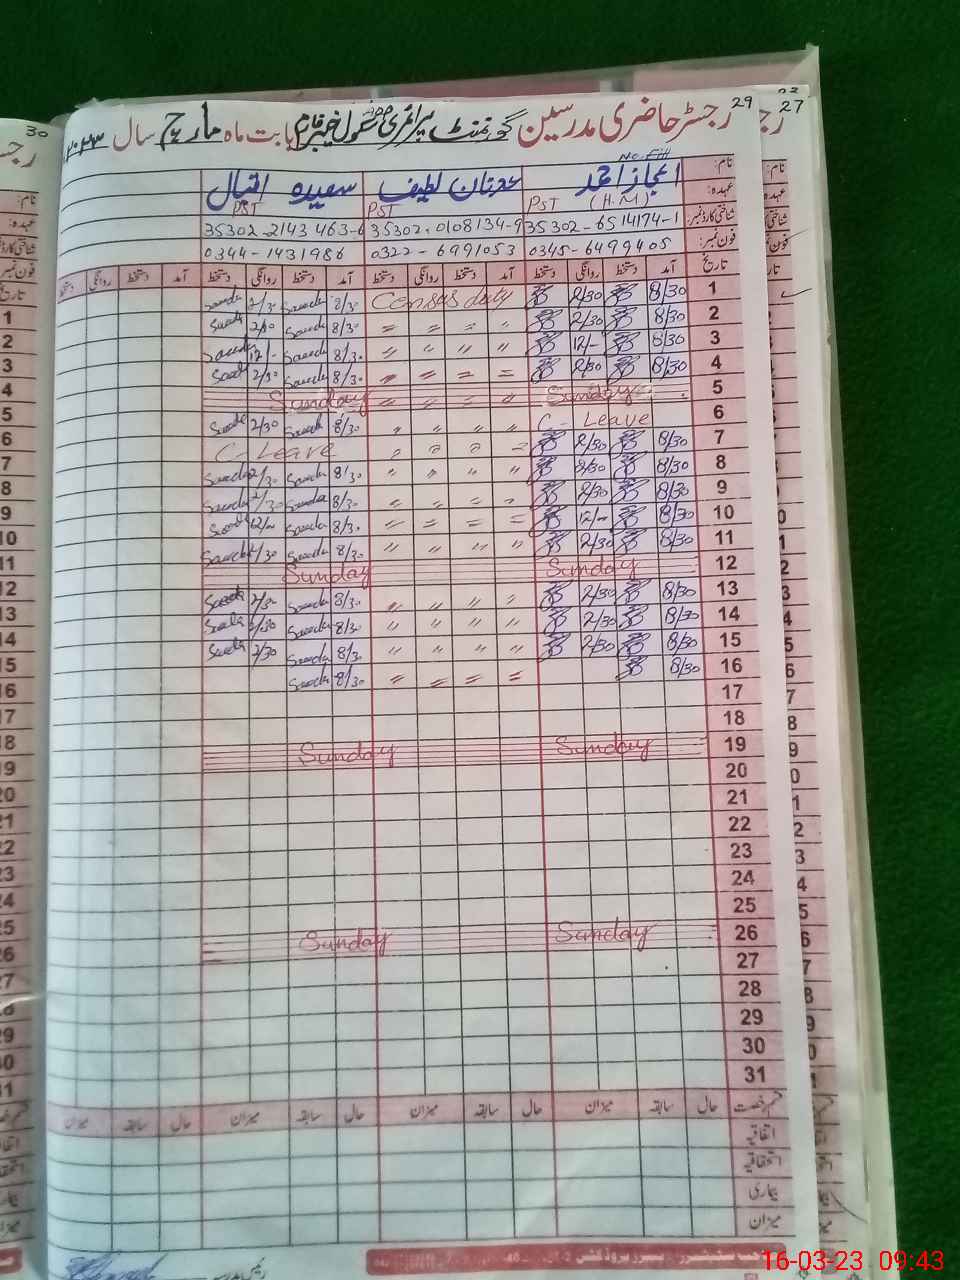 29 27
رجسٹر حاضری مدرسین گورنمنٹ پرائمری سکول بابت ماہ مارچ سال ۲۰۲۳
نام: اعجاز احمد عدنان لطیف سعیدہ اقبال
عہدہ: PST (H.M) PST PST
شناختی کارڈ نمبر: 35302-6514174-1 35302-0108134-9 35302-2143463-6
فون نمبر: 0345-6499405 0322-6991053 0344-1431986
تاریخ آمد دستخط روانگی دستخط آمد دستخط روانگی دستخط آمد دستخط روانگی دستخط آمد دستخط روانگی دستخط
1 8/30 2/30 Census duty 8/30 2/30
2 8/30 2/30 〃 〃 〃 〃 8/30 2/30
3 8/30 12/- 〃 〃 〃 〃 8/30 12/-
4 8/30 2/30 〃 〃 〃 〃 8/30 2/30
5 Sunday 〃 〃 〃 〃 Sunday
6 C- Leave 〃 〃 〃 〃 8/30 2/30
7 8/30 2/30 〃 〃 〃 〃 C- Leave
8 8/30 2/30 〃 〃 〃 〃 8/30 2/30
9 8/30 2/30 〃 〃 〃 〃 8/30 2/30
10 8/30 12/- 〃 〃 〃 〃 8/30 12/-
11 8/30 2/30 〃 〃 〃 〃 8/30 2/30
12 Sunday Sunday
13 8/30 2/30 〃 〃 〃 〃 8/30 2/30
14 8/30 2/30 〃 〃 〃 〃 8/30 2/30
15 8/30 2/30 〃 〃 〃 〃 8/30 2/30
16 8/30 〃 〃 〃 〃 8/30
17
18
19 Sunday Sunday
20
21
22
23
24
25
26 Sunday Sunday
27
28
29
30
31
قسم رخصت حال سابقہ میزان حال سابقہ میزان حال سابقہ میزان حال سابقہ میزان
اتفاقیہ
استحقاقیہ
بیماری
میزان
رئیس مدرسہ
16-03-23 09:43